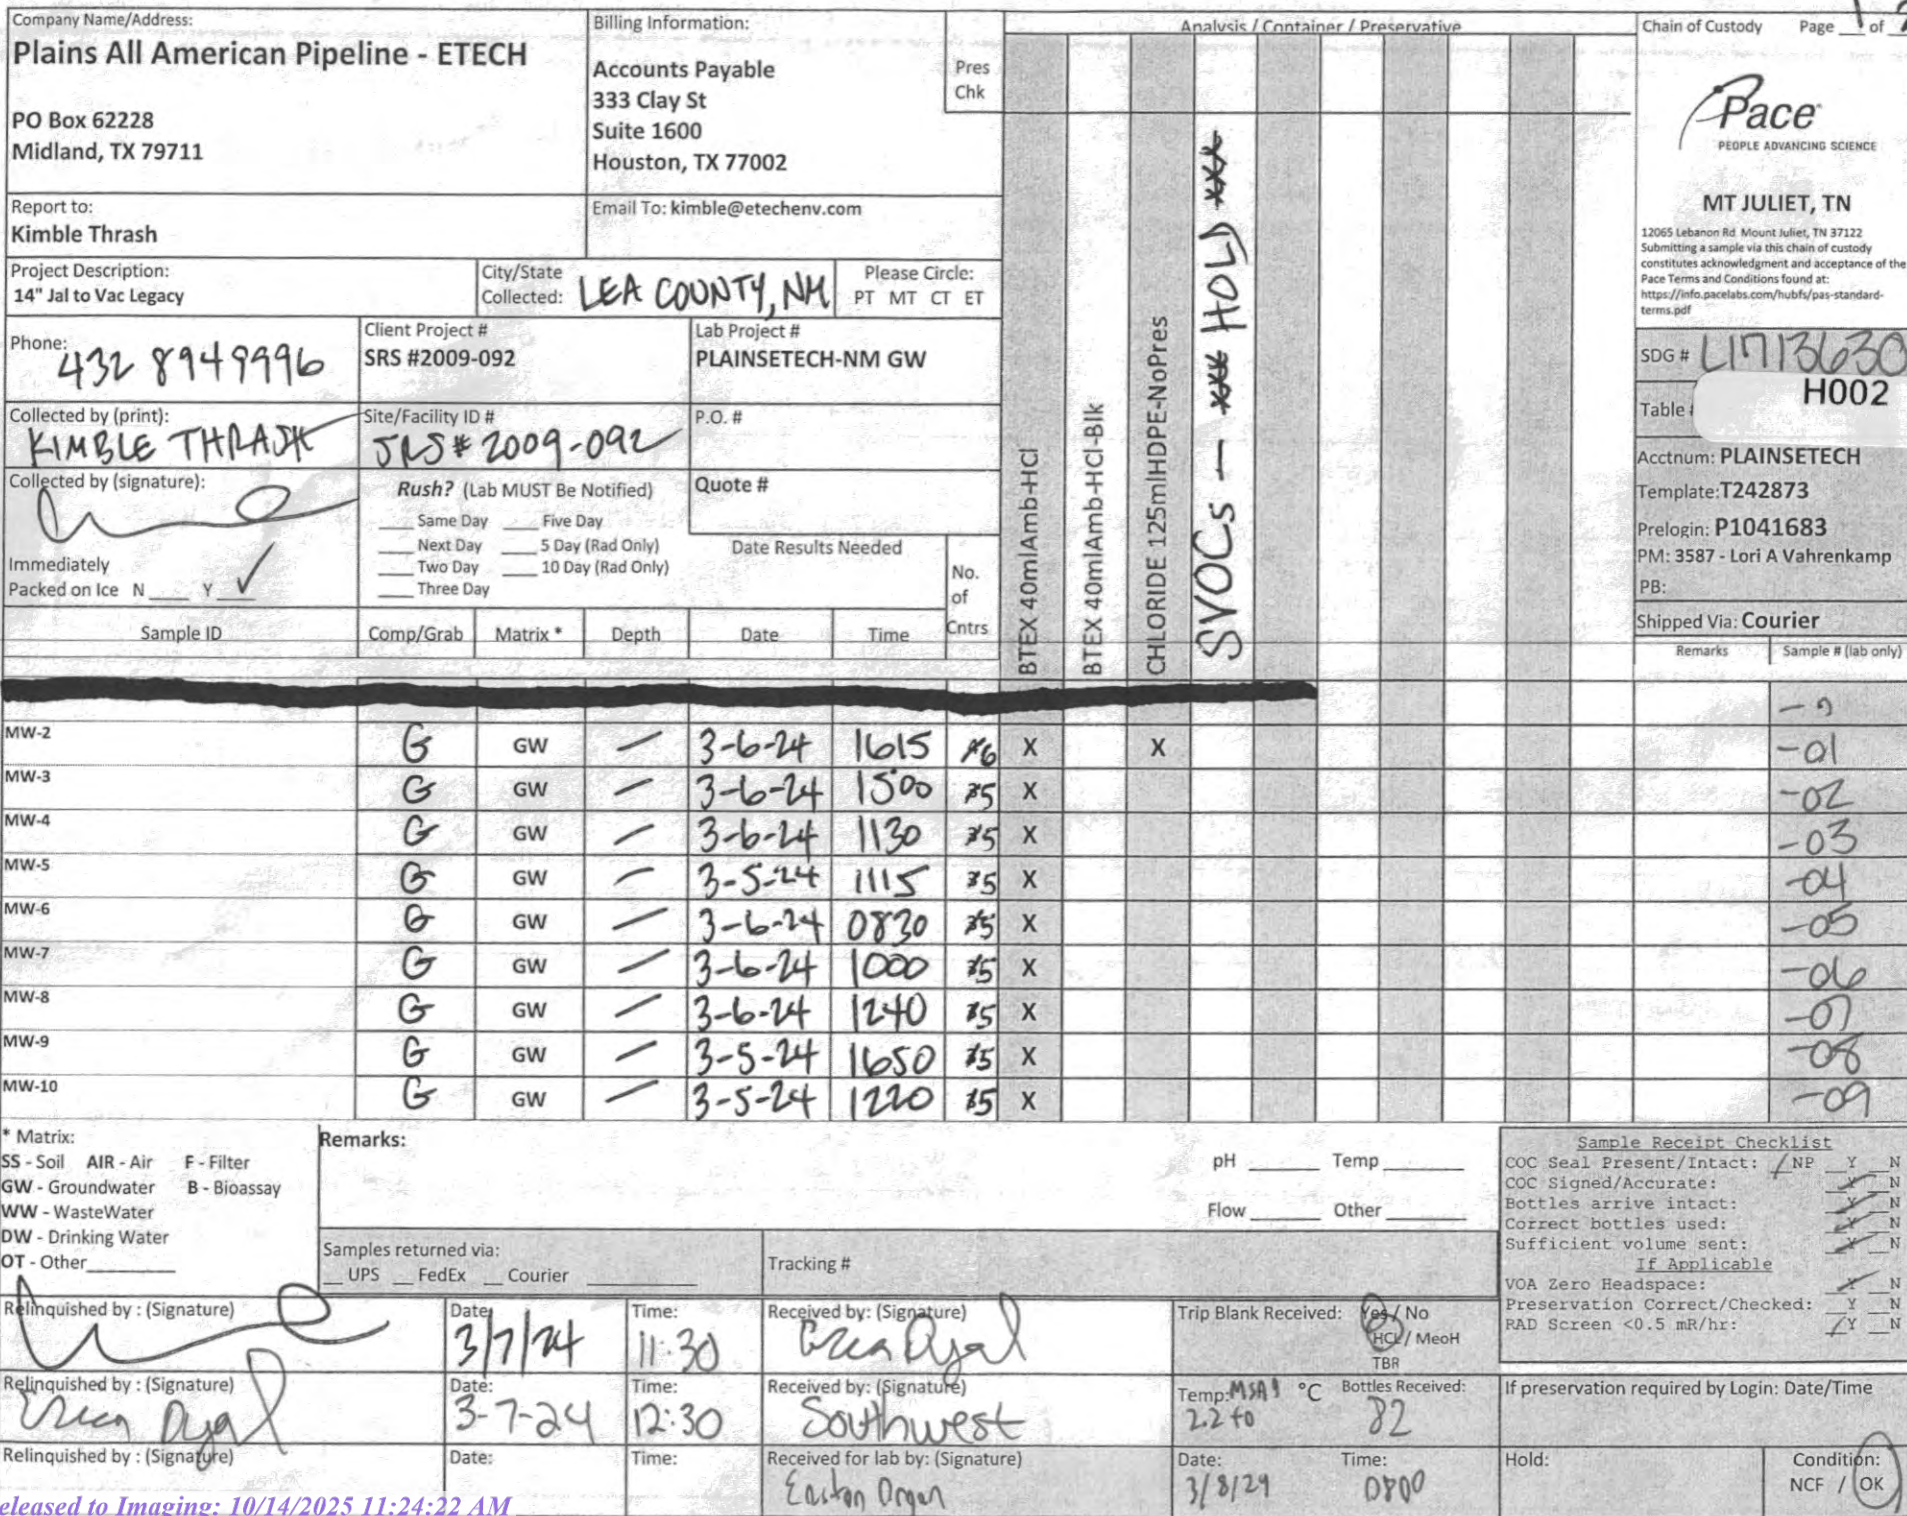 Company Name/Address:
Plains All American Pipeline - ETECH
PO Box 62228
Midland, TX 79711
Billing Information:
Accounts Payable
333 Clay St
Suite 1600
Houston, TX 77002
Pres
Chk
Analysis / Container / Preservative
Chain of Custody Page 1 of
Pace
PEOPLE ADVANCING SCIENCE
MT JULIET, TN
12065 Lebanon Rd Mount Juliet, TN 37122
Submitting a sample via this chain of custody
constitutes acknowledgment and acceptance of the
Pace Terms and Conditions found at:
https://info.pacelabs.com/hubfs/pas-standard-
terms.pdf
Report to:
Kimble Thrash
Email To: kimble@etechenv.com
Project Description:
14" Jal to Vac Legacy
City/State
Collected: LEA COUNTY, NM
Please Circle:
PT MT CT ET
Phone: 432 8949996
Client Project #
SRS #2009-092
Lab Project #
PLAINSETECH-NM GW
Collected by (print):
KIMBLE THRASH
Site/Facility ID #
SRS# 2009-092
P.O. #
Collected by (signature):
Rush? (Lab MUST Be Notified)
Same Day Five Day
Next Day 5 Day (Rad Only)
Two Day 10 Day (Rad Only)
Three Day
Quote #
Date Results Needed
Immediately
Packed on Ice N Y ✓
No.
of
Cntrs
BTEX 40mlAmb-HCl
BTEX 40mlAmb-HCl-Blk
CHLORIDE 125mlHDPE-NoPres
SVOCs — xxx HOLD xxx
SDG # L1713630
Table # H002
Acctnum: PLAINSETECH
Template:T242873
Prelogin: P1041683
PM: 3587 - Lori A Vahrenkamp
PB:
Shipped Via: Courier
Sample ID Comp/Grab Matrix * Depth Date Time Remarks Sample # (lab only)
MW-2 G GW — 3-6-24 1615 6 X X -01
MW-3 G GW — 3-6-24 1500 5 X -02
MW-4 G GW — 3-6-24 1130 5 X -03
MW-5 G GW — 3-5-24 1115 5 X -04
MW-6 G GW — 3-6-24 0830 5 X -05
MW-7 G GW — 3-6-24 1000 5 X -06
MW-8 G GW — 3-6-24 1240 5 X -07
MW-9 G GW — 3-5-24 1650 5 X -08
MW-10 G GW — 3-5-24 1220 5 X -09
* Matrix:
SS - Soil AIR - Air F - Filter
GW - Groundwater B - Bioassay
WW - WasteWater
DW - Drinking Water
OT - Other
Remarks:
pH Temp
Flow Other
Samples returned via:
UPS FedEx Courier
Tracking #
Sample Receipt Checklist
COC Seal Present/Intact: / NP Y N
COC Signed/Accurate: Y N
Bottles arrive intact: Y N
Correct bottles used: Y N
Sufficient volume sent: Y N
If Applicable
VOA Zero Headspace: Y N
Preservation Correct/Checked: Y N
RAD Screen <0.5 mR/hr: Y N
Relinquished by : (Signature)
Date: 3/7/24
Time: 11:30
Received by: (Signature)
Trip Blank Received: Yes / No
HCL / MeoH
TBR
Relinquished by : (Signature)
Date: 3-7-24
Time: 12:30
Received by: (Signature)
Southwest
Temp: °C
2.2
Bottles Received:
82
If preservation required by Login: Date/Time
Relinquished by : (Signature)
Date:
Time:
Received for lab by: (Signature)
Easton
Date: 3/8/24
Time: 0800
Hold:
Condition:
NCF / OK
eleased to Imaging: 10/14/2025 11:24:22 AM